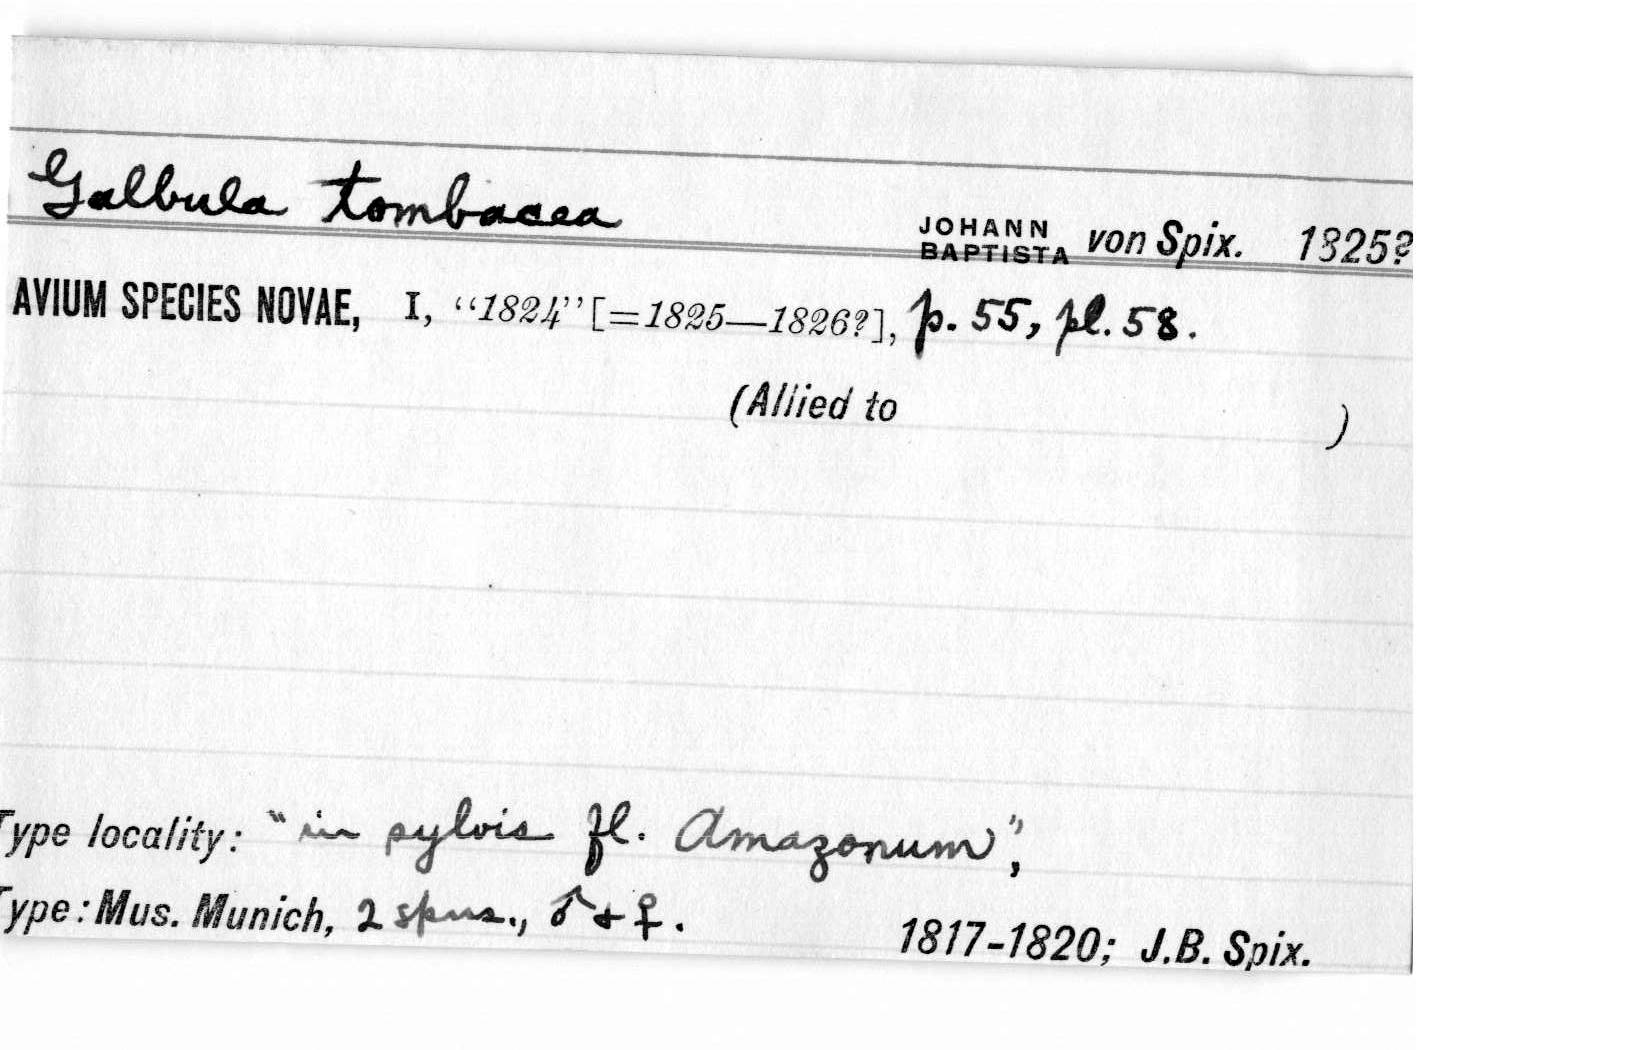 Galbula tombacea
JOHANN BAPTISTA von Spix. 1825?
AVIUM SPECIES NOVAE, I, "1824" [=1825—1826?], p. 55, pl. 58.
(Allied to )
Type locality: "in sylvis fl. Amazonum",
Type: Mus. Munich, 2 spms., ♂ + ♀.
1817-1820; J.B. Spix.